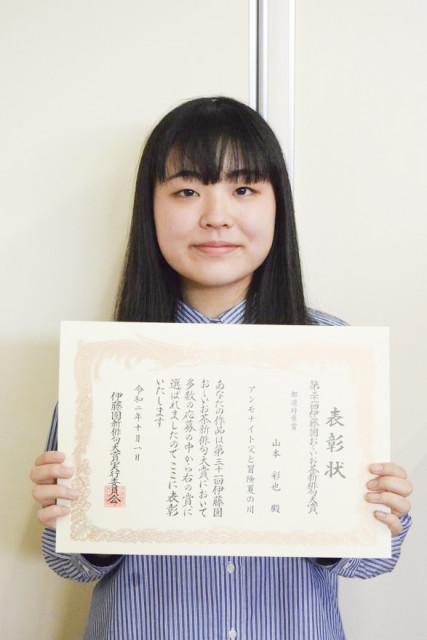 表彰状
第三十一回伊藤園おーいお茶新俳句大賞
都道府県賞
山本 彩也 殿
アンモナイト父と冒険夏の川
あなたの作品は第三十一回伊藤園
おーいお茶新俳句大賞において
多数の応募の中から右の賞に
選ばれましたのでここに表彰
いたします
令和二年十月一日
伊藤園新俳句大賞実行委員会